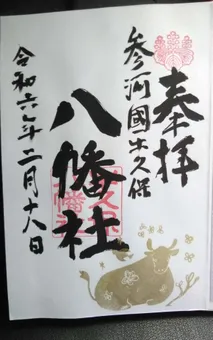 奉拝
参河國大久保
八幡社
令和六年二月十八日